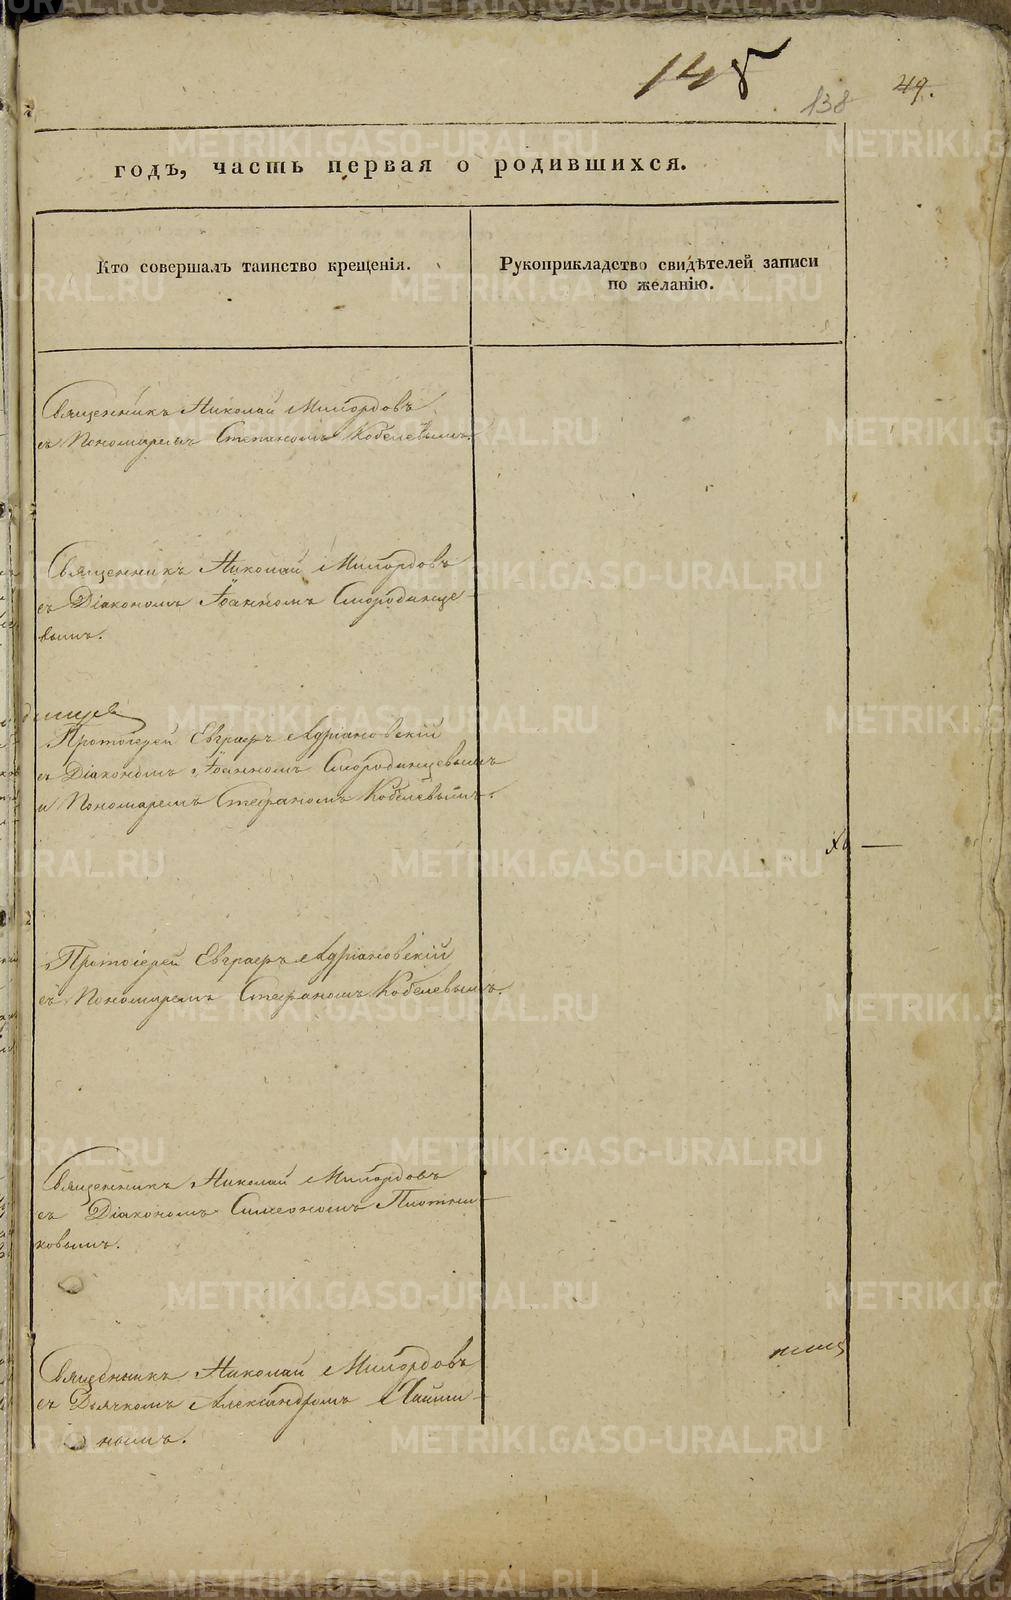 148
138
49.
годъ, часть первая о родившихся.
Кто совершалъ таинство крещенія.
Рукоприкладство свидѣтелей записи
по желанію.
Священникъ Николай Милордовъ
съ Пономаремъ Степаномъ Кобелевымъ.
Священникъ Николай Милордовъ
съ Діакономъ Іоанномъ Смородинце-
вымъ.
Протоіерей Евграфъ Адріановскій
съ Діакономъ Іоанномъ Смородинцевымъ
и Пономаремъ Стефаномъ Кобелевымъ.
Протоіерей Евграфъ Адріановскій
съ Пономаремъ Стефаномъ Кобелевымъ.
Священникъ Николай Милордовъ
съ Діакономъ Симеономъ Плотни-
ковымъ.
Священникъ Николай Милордовъ
съ Дьячкомъ Александромъ
нымъ.
METRIKI.GASO-URAL.RU